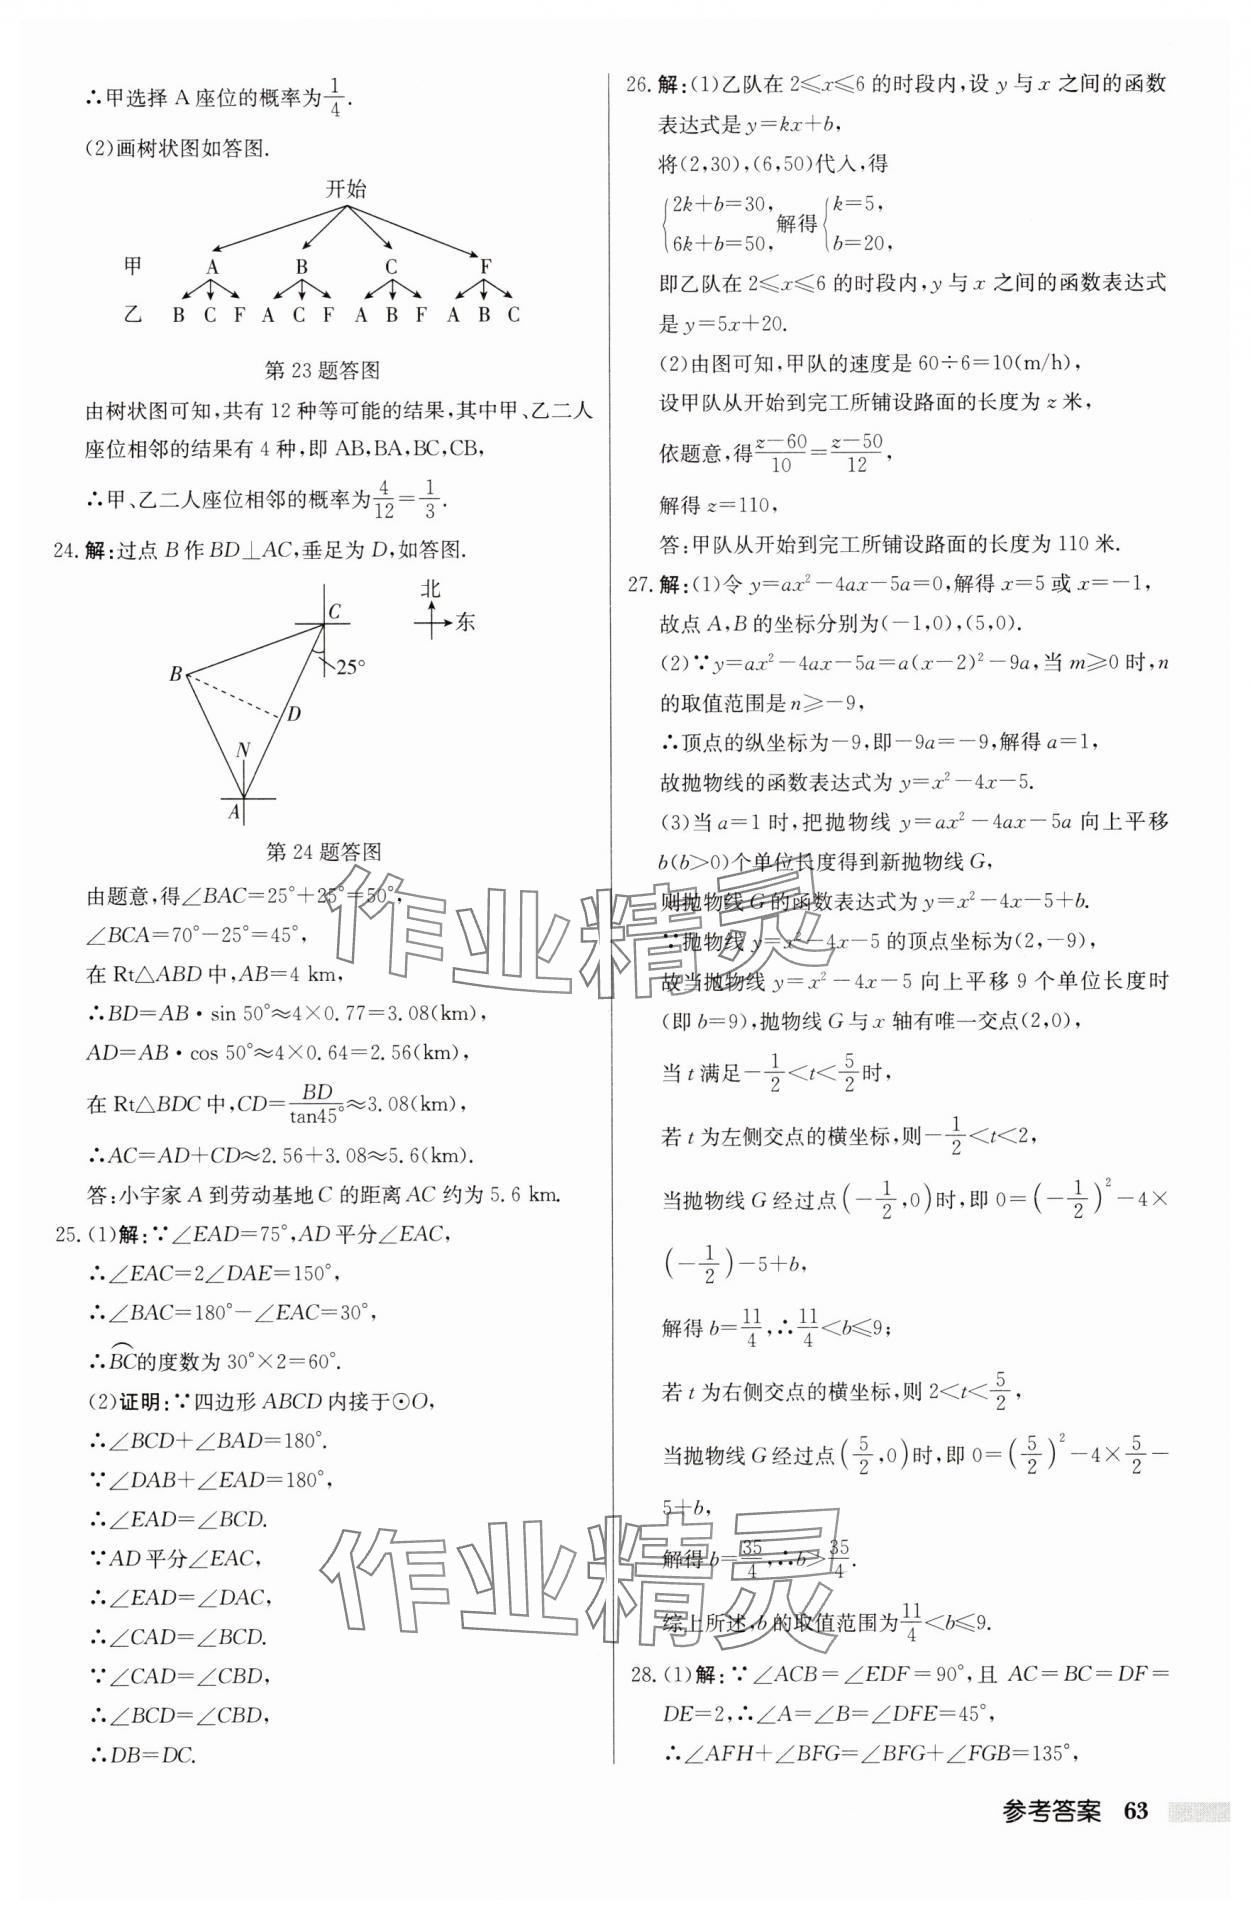 ∴甲选择 A 座位的概率为1/4.
(2)画树状图如答图.
开始
甲 A B C F
乙 B C F A C F A B F A B C
第 23 题答图
由树状图可知,共有 12 种等可能的结果,其中甲、乙二人
座位相邻的结果有 4 种,即 AB,BA,BC,CB,
∴甲、乙二人座位相邻的概率为4/12=1/3.
24. 解:过点 B 作 BD⊥AC,垂足为 D,如答图.
北
东
C
25°
B
D
N
A
第 24 题答图
由题意,得∠BAC=25°+25°=50°,
∠BCA=70°-25°=45°,
在 Rt△ABD 中,AB=4 km,
∴BD=AB·sin 50°≈4×0.77=3.08(km),
AD=AB·cos 50°≈4×0.64=2.56(km),
在 Rt△BDC 中,CD=BD/tan45°≈3.08(km),
∴AC=AD+CD≈2.56+3.08≈5.6(km).
答:小宇家 A 到劳动基地 C 的距离 AC 约为 5.6 km.
25. (1)解:∵∠EAD=75°,AD 平分∠EAC,
∴∠EAC=2∠DAE=150°,
∴∠BAC=180°-∠EAC=30°,
∴⌒BC的度数为 30°×2=60°.
(2)证明:∵四边形 ABCD 内接于⊙O,
∴∠BCD+∠BAD=180°.
∵∠DAB+∠EAD=180°,
∴∠EAD=∠BCD.
∵AD 平分∠EAC,
∴∠EAD=∠DAC,
∴∠CAD=∠BCD.
∵∠CAD=∠CBD,
∴∠BCD=∠CBD,
∴DB=DC.
26. 解:(1)乙队在 2≤x≤6 的时段内,设 y 与 x 之间的函数
表达式是 y=kx+b,
将(2,30),(6,50)代入,得
{2k+b=30, 6k+b=50, 解得{k=5, b=20,
即乙队在 2≤x≤6 的时段内,y 与 x 之间的函数表达式
是 y=5x+20.
(2)由图可知,甲队的速度是 60÷6=10(m/h),
设甲队从开始到完工所铺设路面的长度为 z 米,
依题意,得(z-60)/10=(z-50)/12,
解得 z=110,
答:甲队从开始到完工所铺设路面的长度为 110 米.
27. 解:(1)令 y=ax²-4ax-5a=0,解得 x=5 或 x=-1,
故点 A,B 的坐标分别为(-1,0),(5,0).
(2)∵y=ax²-4ax-5a=a(x-2)²-9a,当 m≥0 时,n
的取值范围是 n≥-9,
∴顶点的纵坐标为-9,即-9a=-9,解得 a=1,
故抛物线的函数表达式为 y=x²-4x-5.
(3)当 a=1 时,把抛物线 y=ax²-4ax-5a 向上平移
b(b>0)个单位长度得到新抛物线 G,
则抛物线 G 的函数表达式为 y=x²-4x-5+b.
∵抛物线 y=x²-4x-5 的顶点坐标为(2,-9),
故当抛物线 y=x²-4x-5 向上平移 9 个单位长度时
(即 b=9),抛物线 G 与 x 轴有唯一交点(2,0),
当 t 满足-1/2<t<5/2时,
若 t 为左侧交点的横坐标,则-1/2<t<2,
当抛物线 G 经过点(-1/2,0)时,即 0=(-1/2)²-4×
(-1/2)-5+b,
解得 b=11/4,∴11/4<b≤9;
若 t 为右侧交点的横坐标,则 2<t<5/2,
当抛物线 G 经过点(5/2,0)时,即 0=(5/2)²-4×5/2-
5+b,
解得 b=35/4,∴b>35/4.
综上所述,b 的取值范围为11/4<b≤9.
28. (1)解:∵∠ACB=∠EDF=90°,且 AC=BC=DF=
DE=2,∴∠A=∠B=∠DFE=45°,
∴∠AFH+∠BFG=∠BFG+∠FGB=135°,
参考答案 63
作业精灵
作业精灵